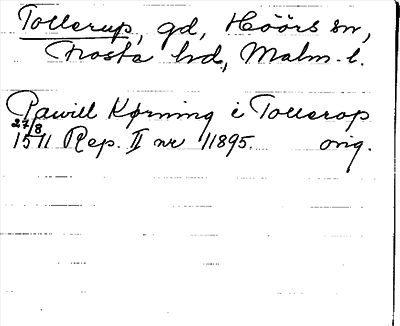 Tollerup, gd, Höörs sn,
Frosta hd, Malm. l.
Pawill Kørning i Tollerop
27/8
1511 Rep. II nr 11895. orig.